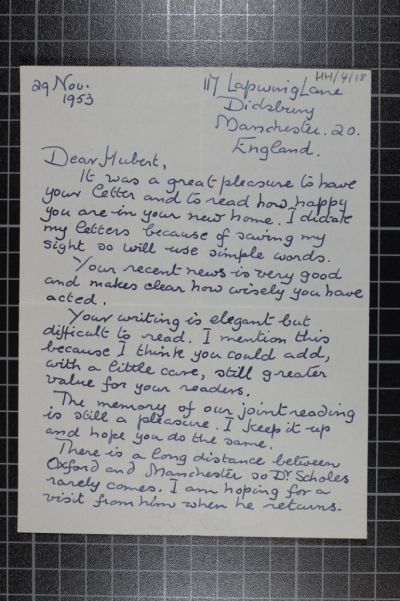 HH/4/18
29 Nov.
1953
117 Lapwing Lane
Didsbury
Manchester. 20.
England.
Dear Hubert,
It was a great pleasure to have
your letter and to read how happy
you are in your new home. I dictate
my letters because of saving my
sight so will use simple words.
Your recent news is very good
and makes clear how wisely you have
acted.
Your writing is elegant but
difficult to read. I mention this
because I think you could add,
with a little care, still greater
value for your readers.
The memory of our joint reading
is still a pleasure. I keep it up
and hope you do the same.
There is a long distance between
Oxford and Manchester so Dr. Scholes
rarely comes. I am hoping for a
visit from him when he returns.